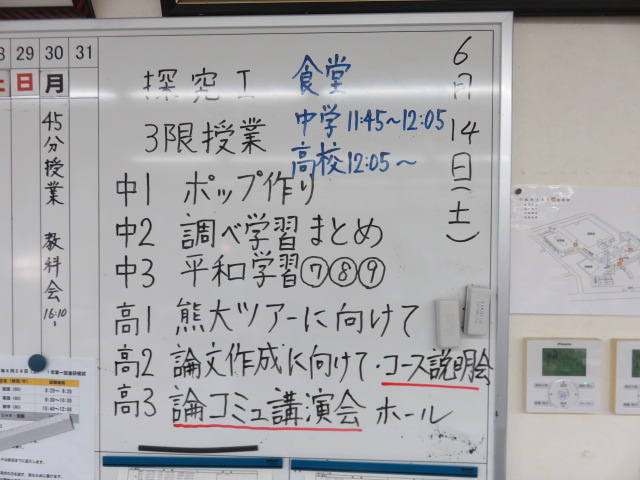 29 30 31
日 月
45分授業 教科会 16:10~
6月14日(土)
探究I 食堂
3限授業 中学11:45~12:05
高校12:05~
中1 ポップ作り
中2 調べ学習まとめ
中3 平和学習⑦⑧⑨
高1 熊大ツアーに向けて
高2 論文作成に向けて・コース説明会
高3 論コミュ講演会 ホール
8:20~ 9:20
9:30~10:30
10:40~12:00